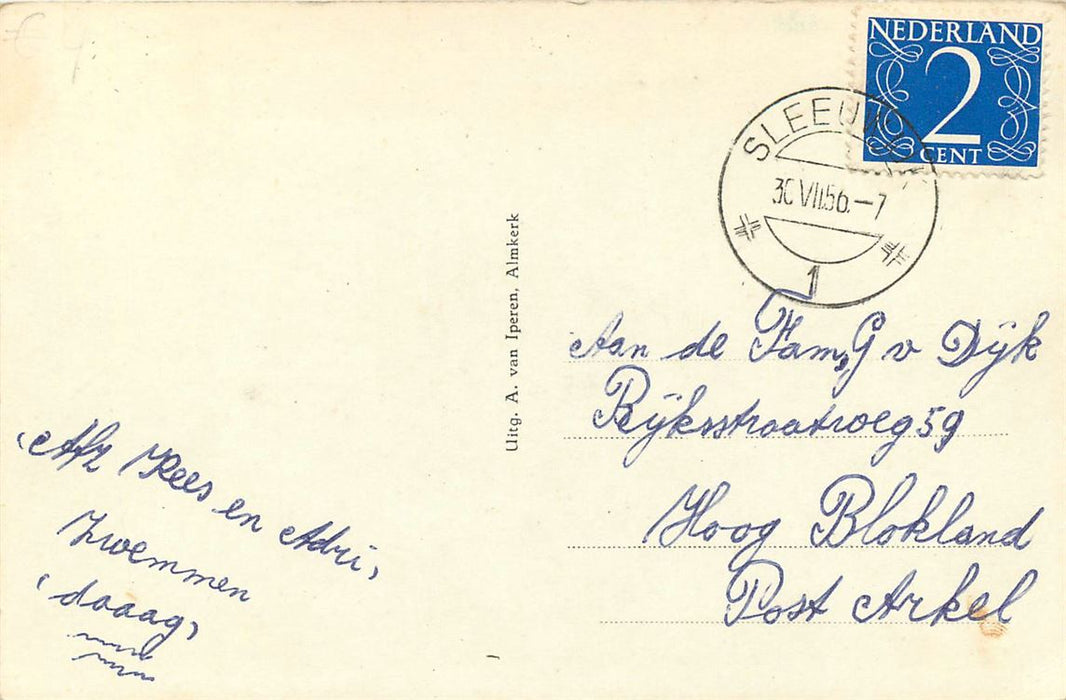 € 4
NEDERLAND
2
CENT
30 VII.56.–7
1
Uitg. A. van Iperen, Almkerk
Aan de Fam, G v Dijk
Rijksstraatweg 59
Hoog Blokland
Post Arkel
Afz Kees en Adri,
Zwemmen
(daaag)